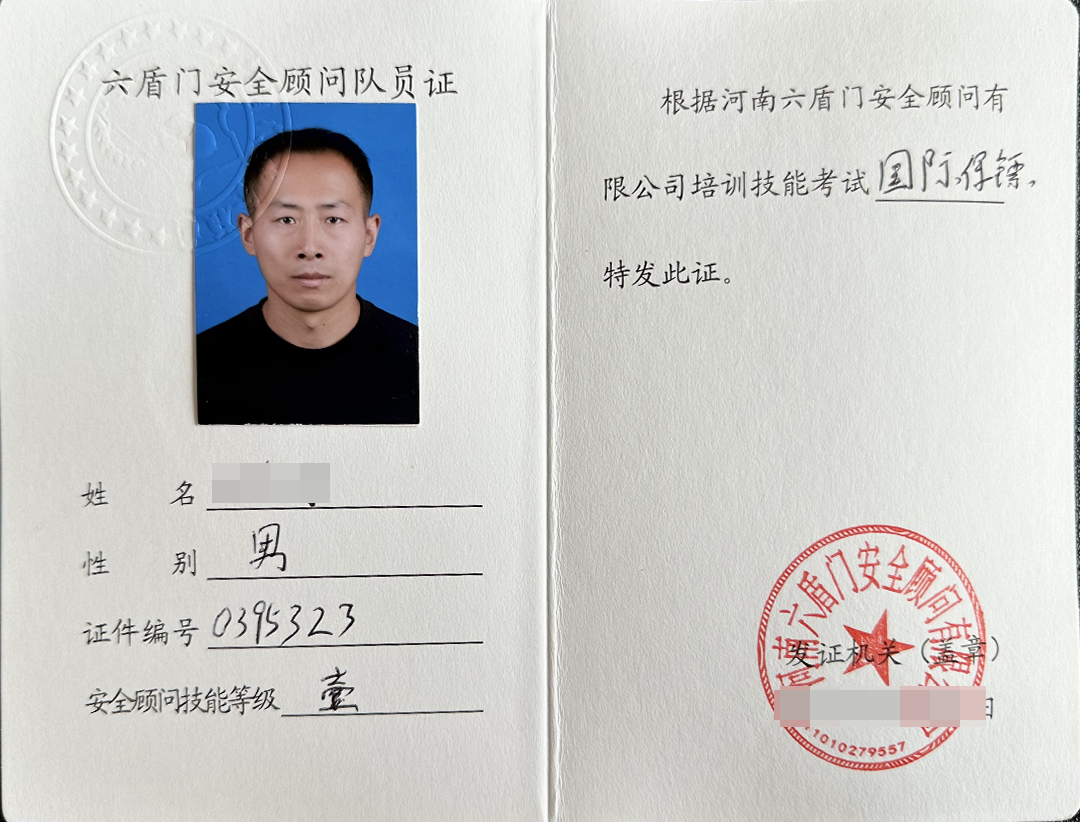 六盾门安全顾问队员证
姓 名
性 别 男
证件编号 0395323
安全顾问技能等级 壹
根据河南六盾门安全顾问有
限公司培训技能考试国际保镖,
特发此证。
河南六盾门安全顾问有限公司
发证机关（盖章）
日
11010279557